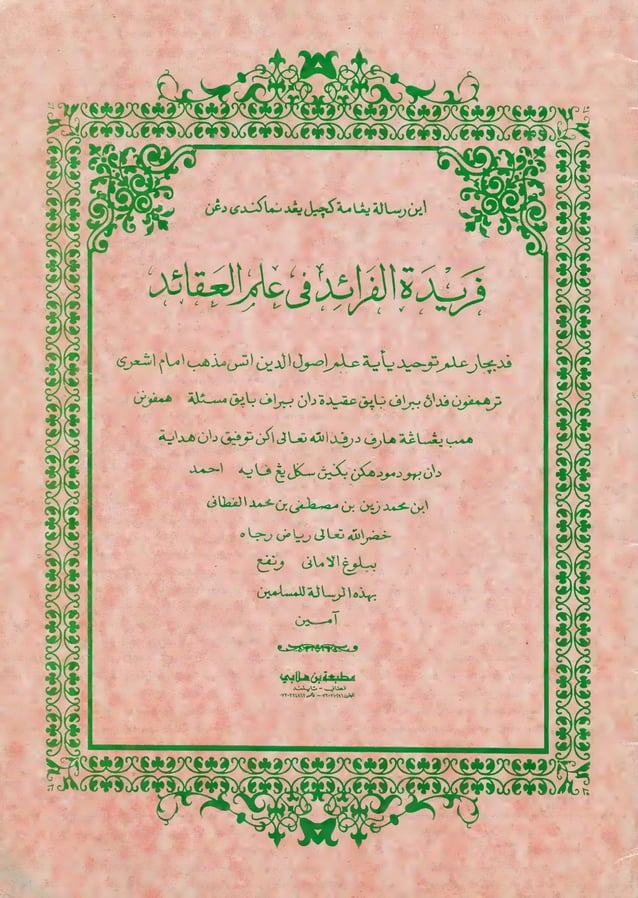 اين رسالة يڠامة کچيل يڠد نماکندى دڠن
فَرِيْدَةُ الفَرَائِدِ فى عِلْمِ العَقَائِد
قد بچار علم توحيد يأية علم اصول الدين اتس مذهب امام اشعرى
ترهمفون فداڽ ببراف باڽق عقيدة دان ببراف باڽق مسئلة همفونن
همب يڠساڠة هارف درفد الله تعالى اکن توفيق دان هداية
دان بهو دمودهکن بݢيڽ سکل يڠ فايه احمد
ابن محمد زين بن مصطفى بن محمد الفطانى
خضر الله تعالى رياض رجاه
ببلوغ الامانى ونفع
بهذه الرسالة للمسلمين
آمين
مطبعة بن هلابي
فطاني - تايلند